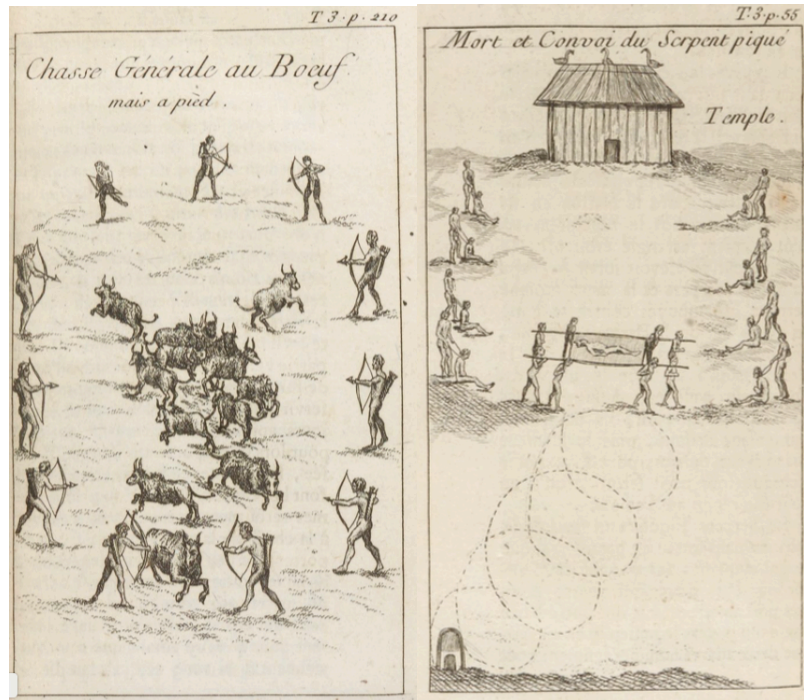 T 3. p. 210
Chasse Générale au Boeuf
mais a pièd.
T. 3. p. 55
Mort et Convoi du Serpent piqué
Temple.